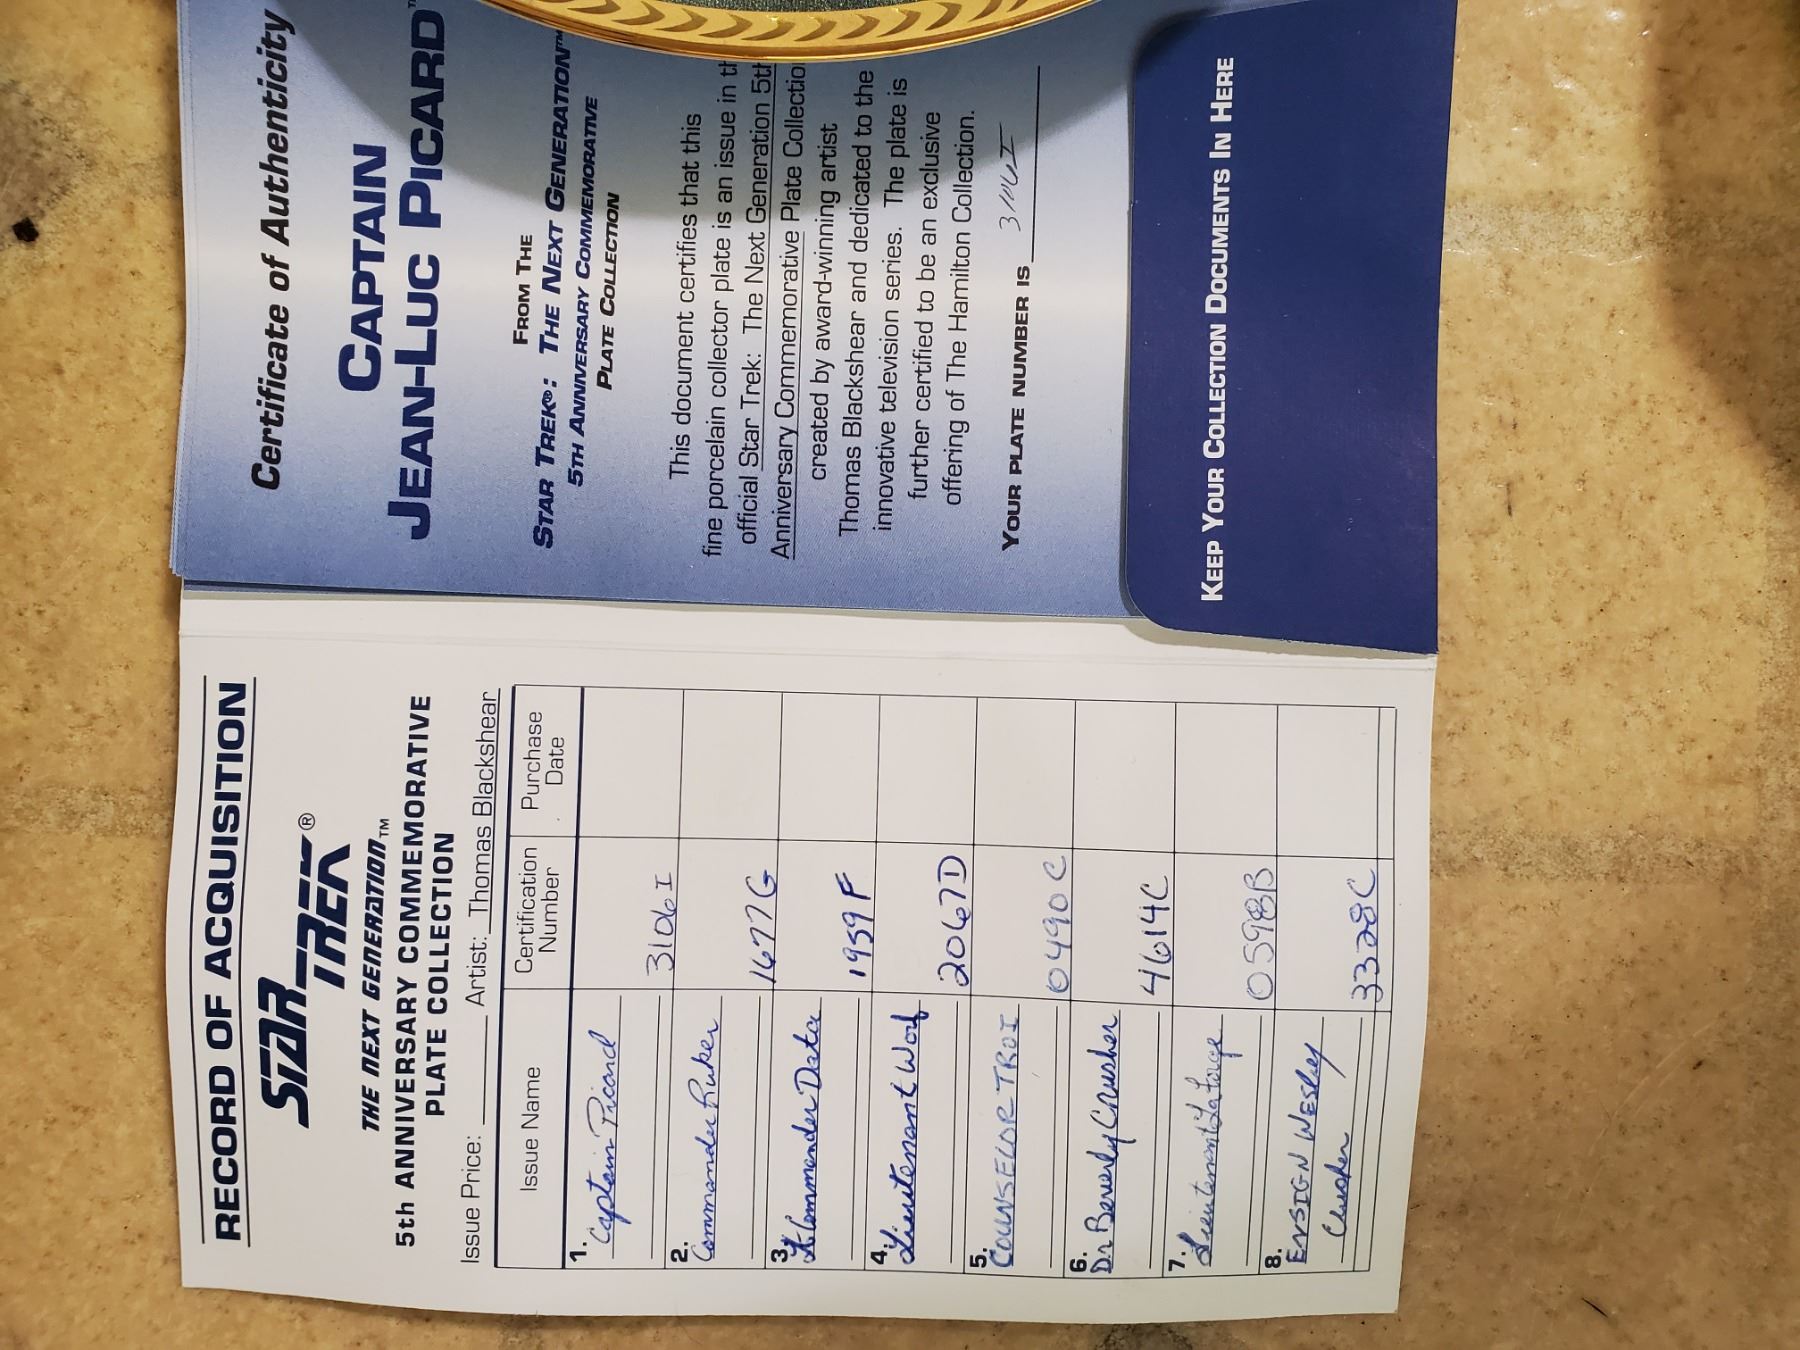 RECORD OF ACQUISITION
STAR TREK®
THE NEXT GENERATION™
5th ANNIVERSARY COMMEMORATIVE
PLATE COLLECTION
Issue Price: Artist: Thomas Blackshear
Issue Name Certification Number Purchase Date
1. Captain Picard 3106I
2. Commander Riker 1677G
3. Lt Commander Data 1959F
4. Lieutenant Worf 2067D
5. COUNSELOR TROI 0490C
6. Dr Beverly Crusher 4614C
7. Lieutenant LaForge 0598B
8. ENSIGN WESLEY
Crusher 3328C
Certificate of Authenticity
CAPTAIN
JEAN-LUC PICARD™
FROM THE
STAR TREK®: THE NEXT GENERATION™
5TH ANNIVERSARY COMMEMORATIVE
PLATE COLLECTION
This document certifies that this
fine porcelain collector plate is an issue in th
official Star Trek: The Next Generation 5th
Anniversary Commemorative Plate Collectio
created by award-winning artist
Thomas Blackshear and dedicated to the
innovative television series. The plate is
further certified to be an exclusive
offering of The Hamilton Collection.
YOUR PLATE NUMBER IS 3106I
KEEP YOUR COLLECTION DOCUMENTS IN HERE